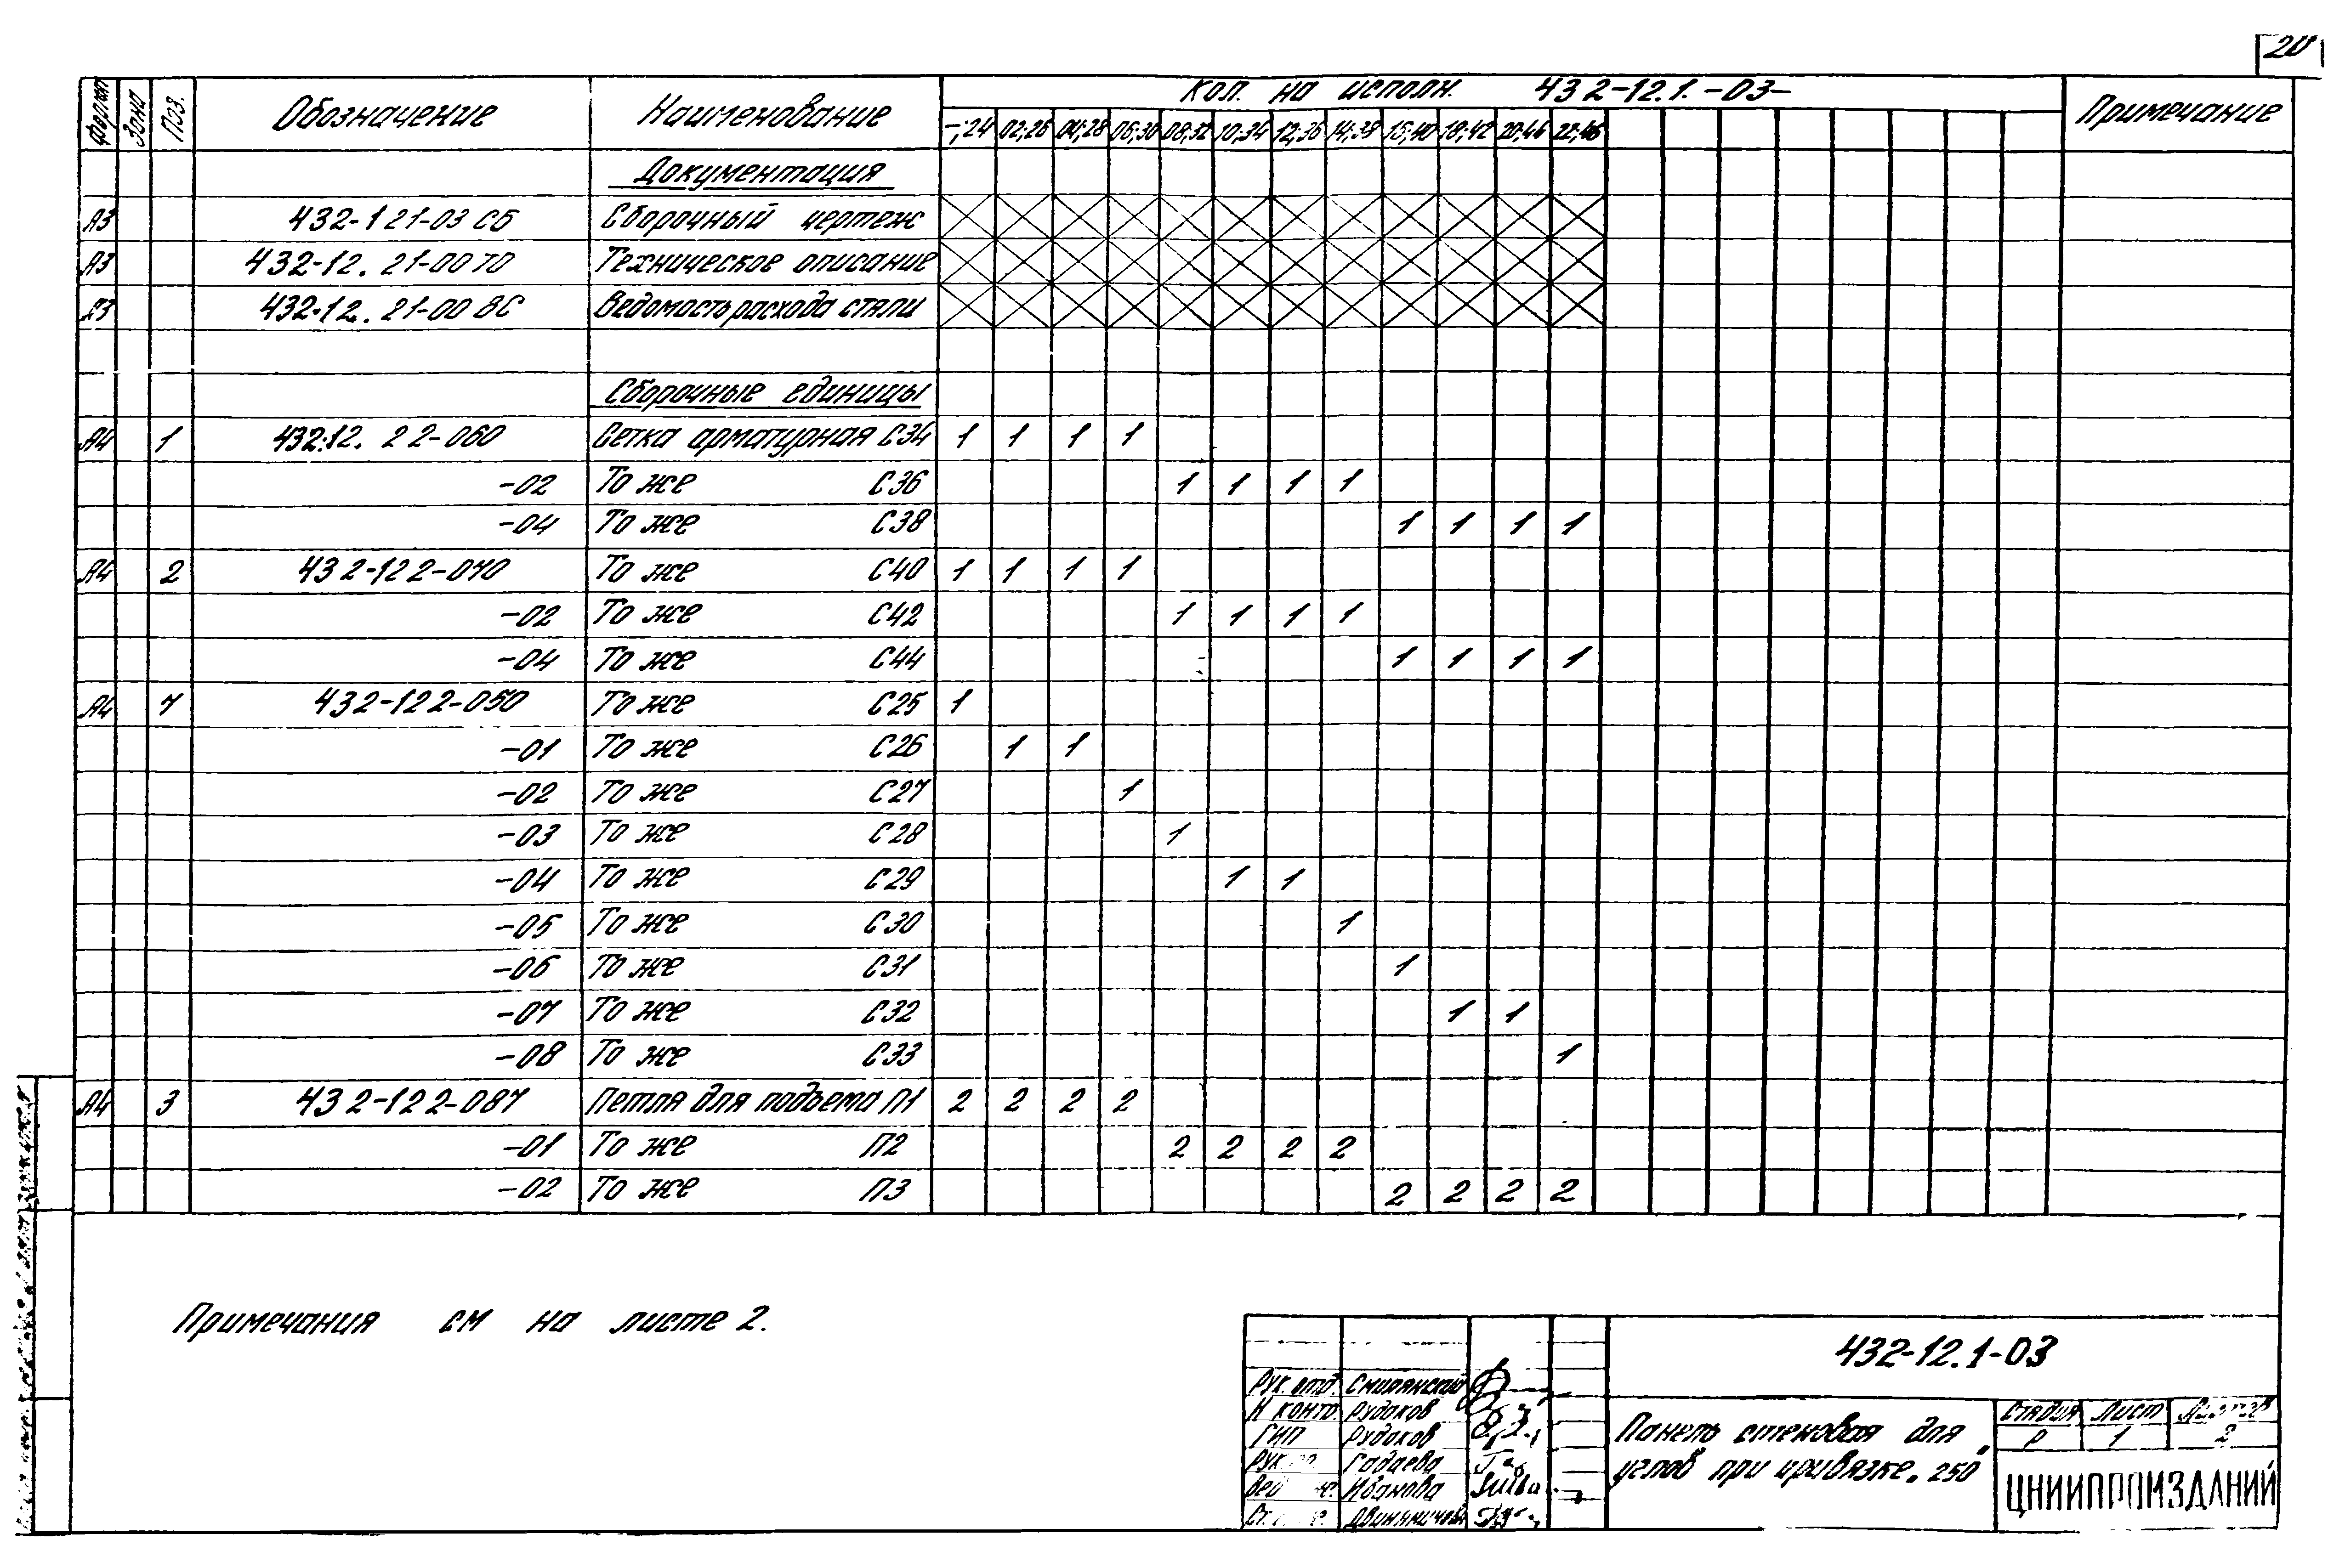 20
Формат Зона Поз. Обозначение Наименование Кол. на исполн. 432-12.1.-03- Примечание
-;24 02;26 04;28 06;30 08;32 10;34 12;36 14;38 16;40 18;42 20;46 22;46
Документация
А3 432-121-03 СБ Сборочный чертеж
А3 432-12.21-00 ТО Техническое описание
А3 432-12.21-00 ВС Ведомость расхода стали
Сборочные единицы
А4 1 432-12.22-060 Сетка арматурная С34 1 1 1 1
-02 То же С36 1 1 1 1
-04 То же С38 1 1 1 1
А4 2 432-122-070 То же С40 1 1 1 1
-02 То же С42 1 1 1 1
-04 То же С44 1 1 1 1
А4 7 432-122-050 То же С25 1
-01 То же С26 1 1
-02 То же С27 1
-03 То же С28 1
-04 То же С29 1 1
-05 То же С30 1
-06 То же С31 1
-07 То же С32 1 1
-08 То же С33 1
А4 3 432-122-087 Петля для подъема П1 2 2 2 2
-01 То же П2 2 2 2 2
-02 То же П3 2 2 2 2
Примечания см на листе 2.
432-12.1-03
Рук. отд. Смилянский
Н контр Рудаков
ГИП Рудаков
Рук. Гадаева
Вед Иванова
Ст.
Панель стеновая для
углов при привязке „250"
Стадия Лист Листов
Р 1 2
ЦНИИПРОМЗДАНИЙ